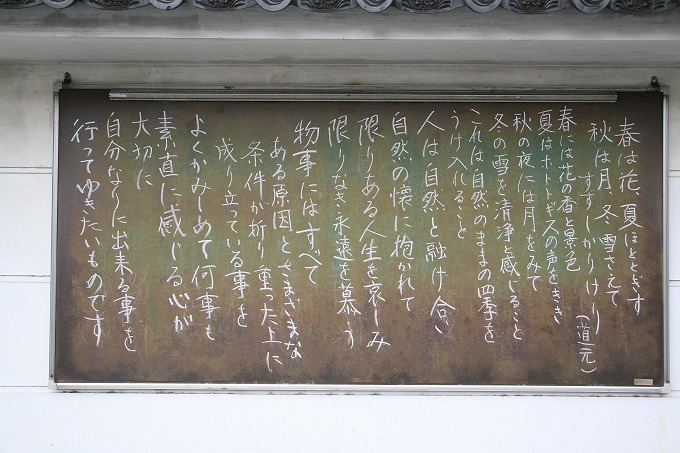 春は花、夏ほととぎす
秋は月、冬雪さえて
すずしかりけり（道元）
春には花の香と景色
夏はホトトギスの声をきき
秋の夜には月をみて
冬の雪を清浄と感じること
これは自然のままの四季を
うけ入れること
人は自然と融け合い
自然の懐に抱かれて
限りある人生を哀しみ
限りなき永遠を慕う
物事にはすべて
ある原因とさまざまな
条件が折り重った上に
成り立っている事を
よくかみしめて何事も
素直に感じる心が
大切に
自分なりに出来る事を
行ってゆきたいものです